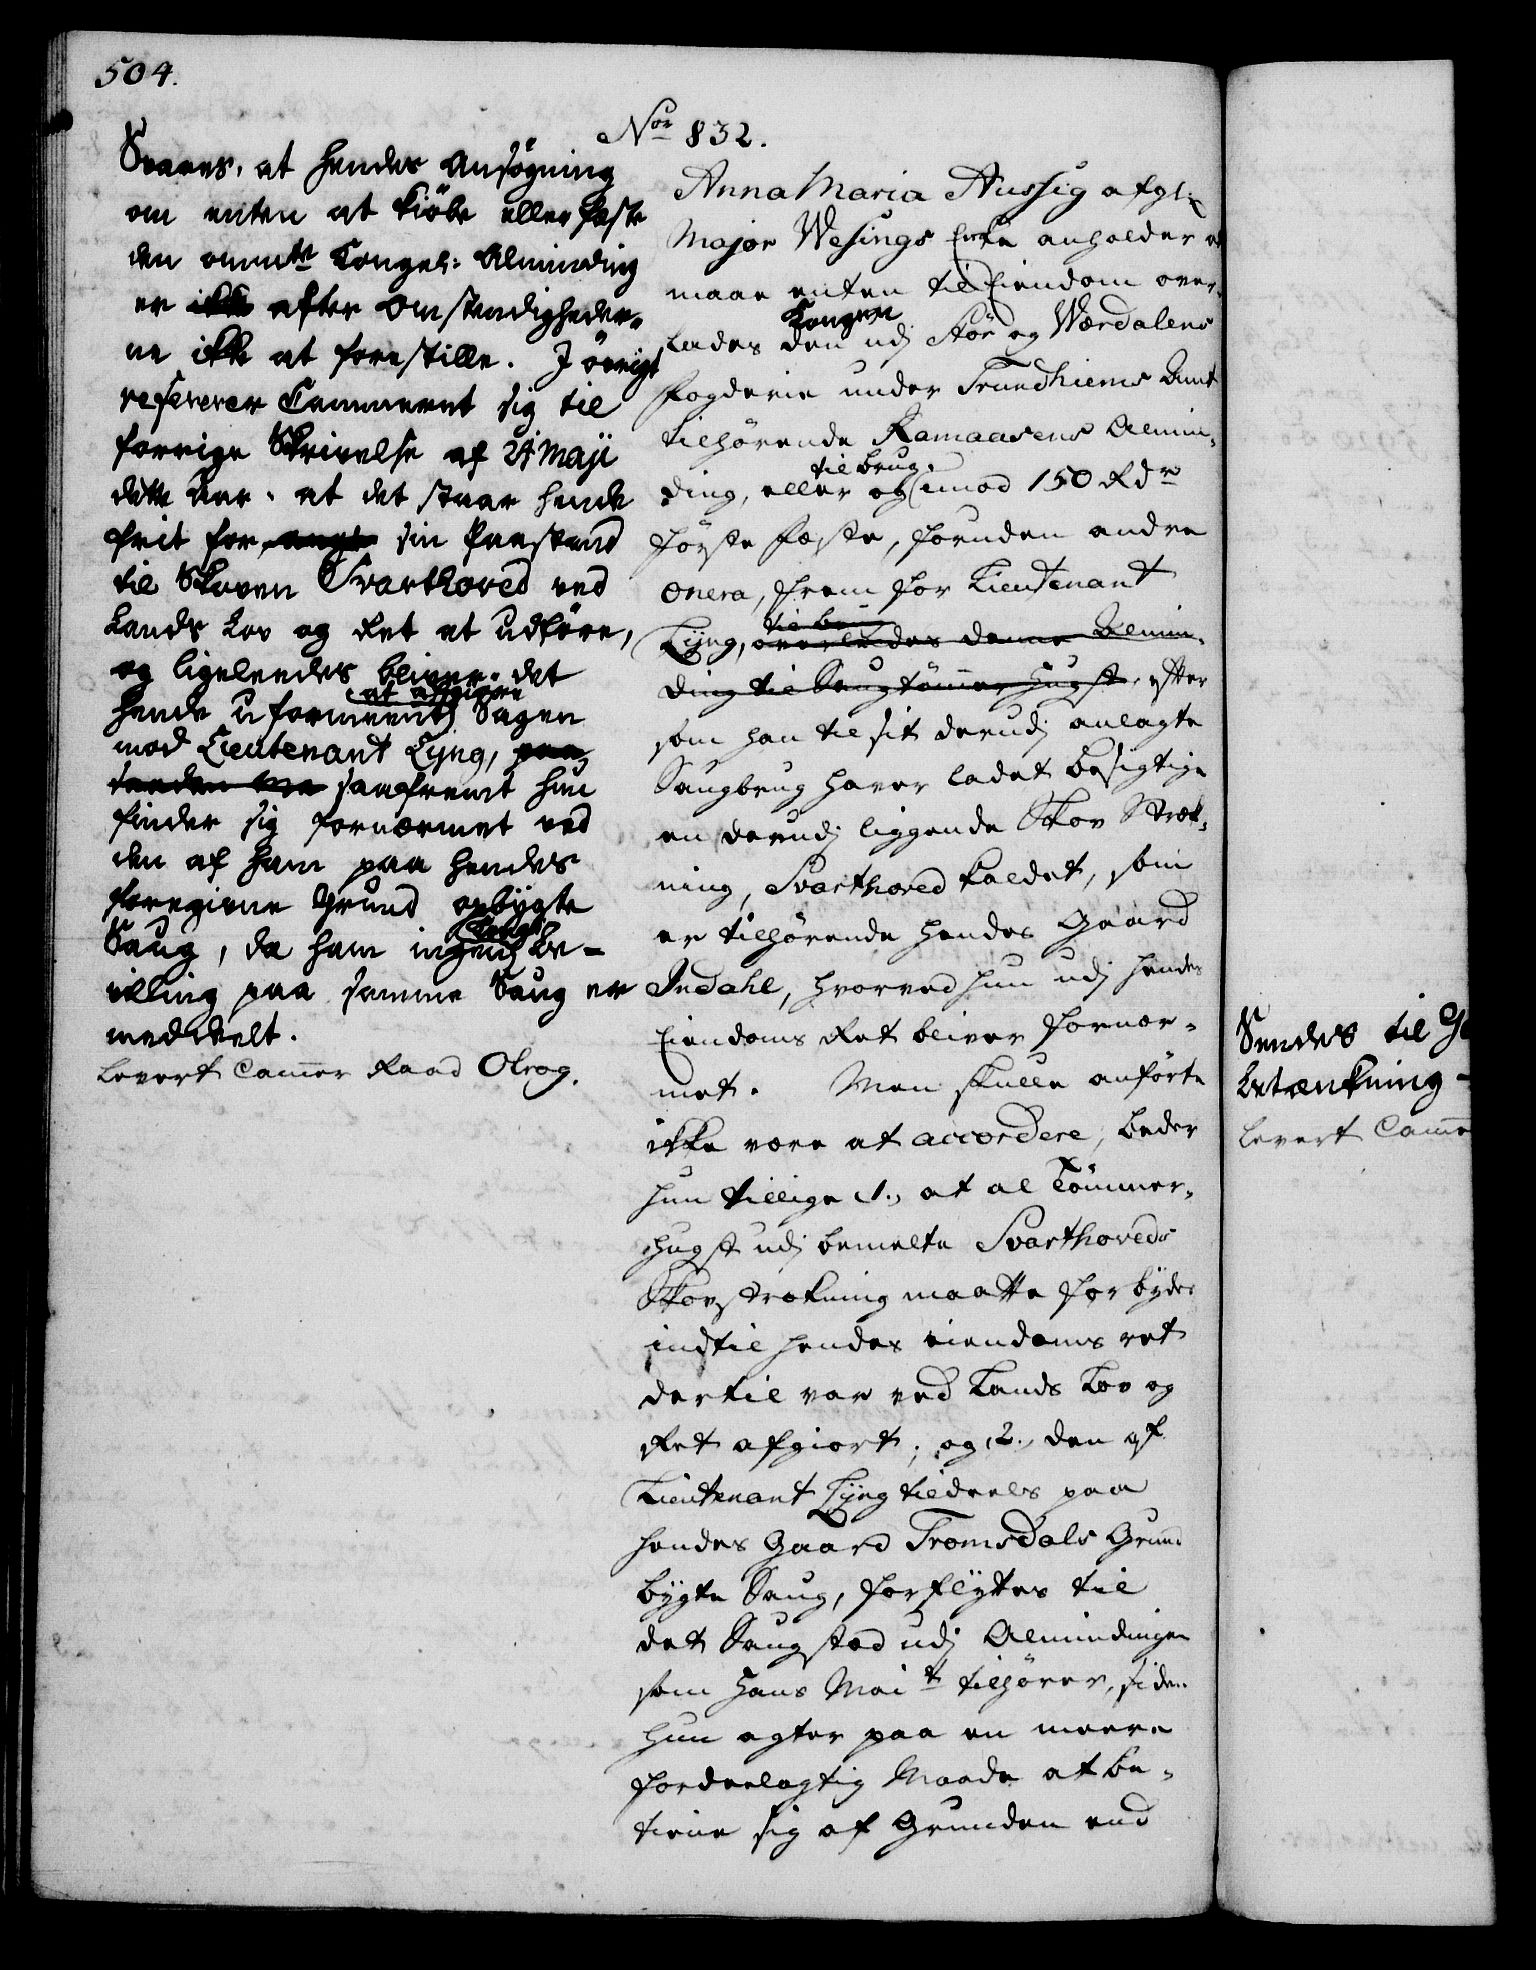 504.
Nor 832.
Svares, at hendes Ansøgning
om enten at kiöbe eller fæste
den ommte Kongel: Alminding
er ikke after Omstendigheder-
ne ikke at forestille. I øvrigt
refererer Cammeret sig til
forrige Skrivelse af 24 Maji
dette Aar, at det staar hende
frit for sin Paastand
til Skoven Svarthoved ved
Lands Lov og Ret at udføre,
og ligeleedes bliver det
at afgiøre
hende uformeent Sagen
mod Lieutenant Lÿng,
saafremt hun
finder sig fornærmet ved
den af ham paa hendes
foregivne Grund opbÿgte
Saug, da ham ingen Be-
villing paa samme Saug er
meddelt.
Levert Cammer Raad Olrog.
Anna Maria Aussig afgl:
Major Wesings Enke anholder at
maae enten til Eiendom over-
Kongen
lades den udj Stör og Wærdalens
Fogderie under Trundhiems Amt
tilhörende Ramaasens Almin-
til brug
ding, eller og imod 150 Rdr
förste Fæste, foruden andre
onera, frem for Lieutenant
til brug
Lÿng, overlades denne Almin-
ding til Saugtömmer Hugst, efter
som han til sit derudj anlagte
Saugbrug haver ladet besigtige
en derudj liggende Skov Stræk-
ning, Svarthoved kaldet, som
er tilhörende hendes Gaard
Indahl, hvorved hun udj hendes
Eiendoms Ret bliver fornær-
met. Men skulle anförte
ikke være at accordere, beder
hun tillige 1., at al Tömmer-
hugst udj bemelte Svarthoveds
Skovstrækning maatte forbÿdes
indtil hendes eiendoms ret
dertil var ved Lands Lov og
Ret afgiort; og 2., den af
Lieutenant Lÿng tildeels paa
hendes Gaard Tromsdals Grund
bÿgte Saug, forflÿttes til
det Saugsted udj Almindingen
som Hans Mait tilhörer, siden
hun agter paa en meere
fordeelagtig Maade at be-
tiene sig af Grunden end
Sendes til
betænkning -
levert Camme